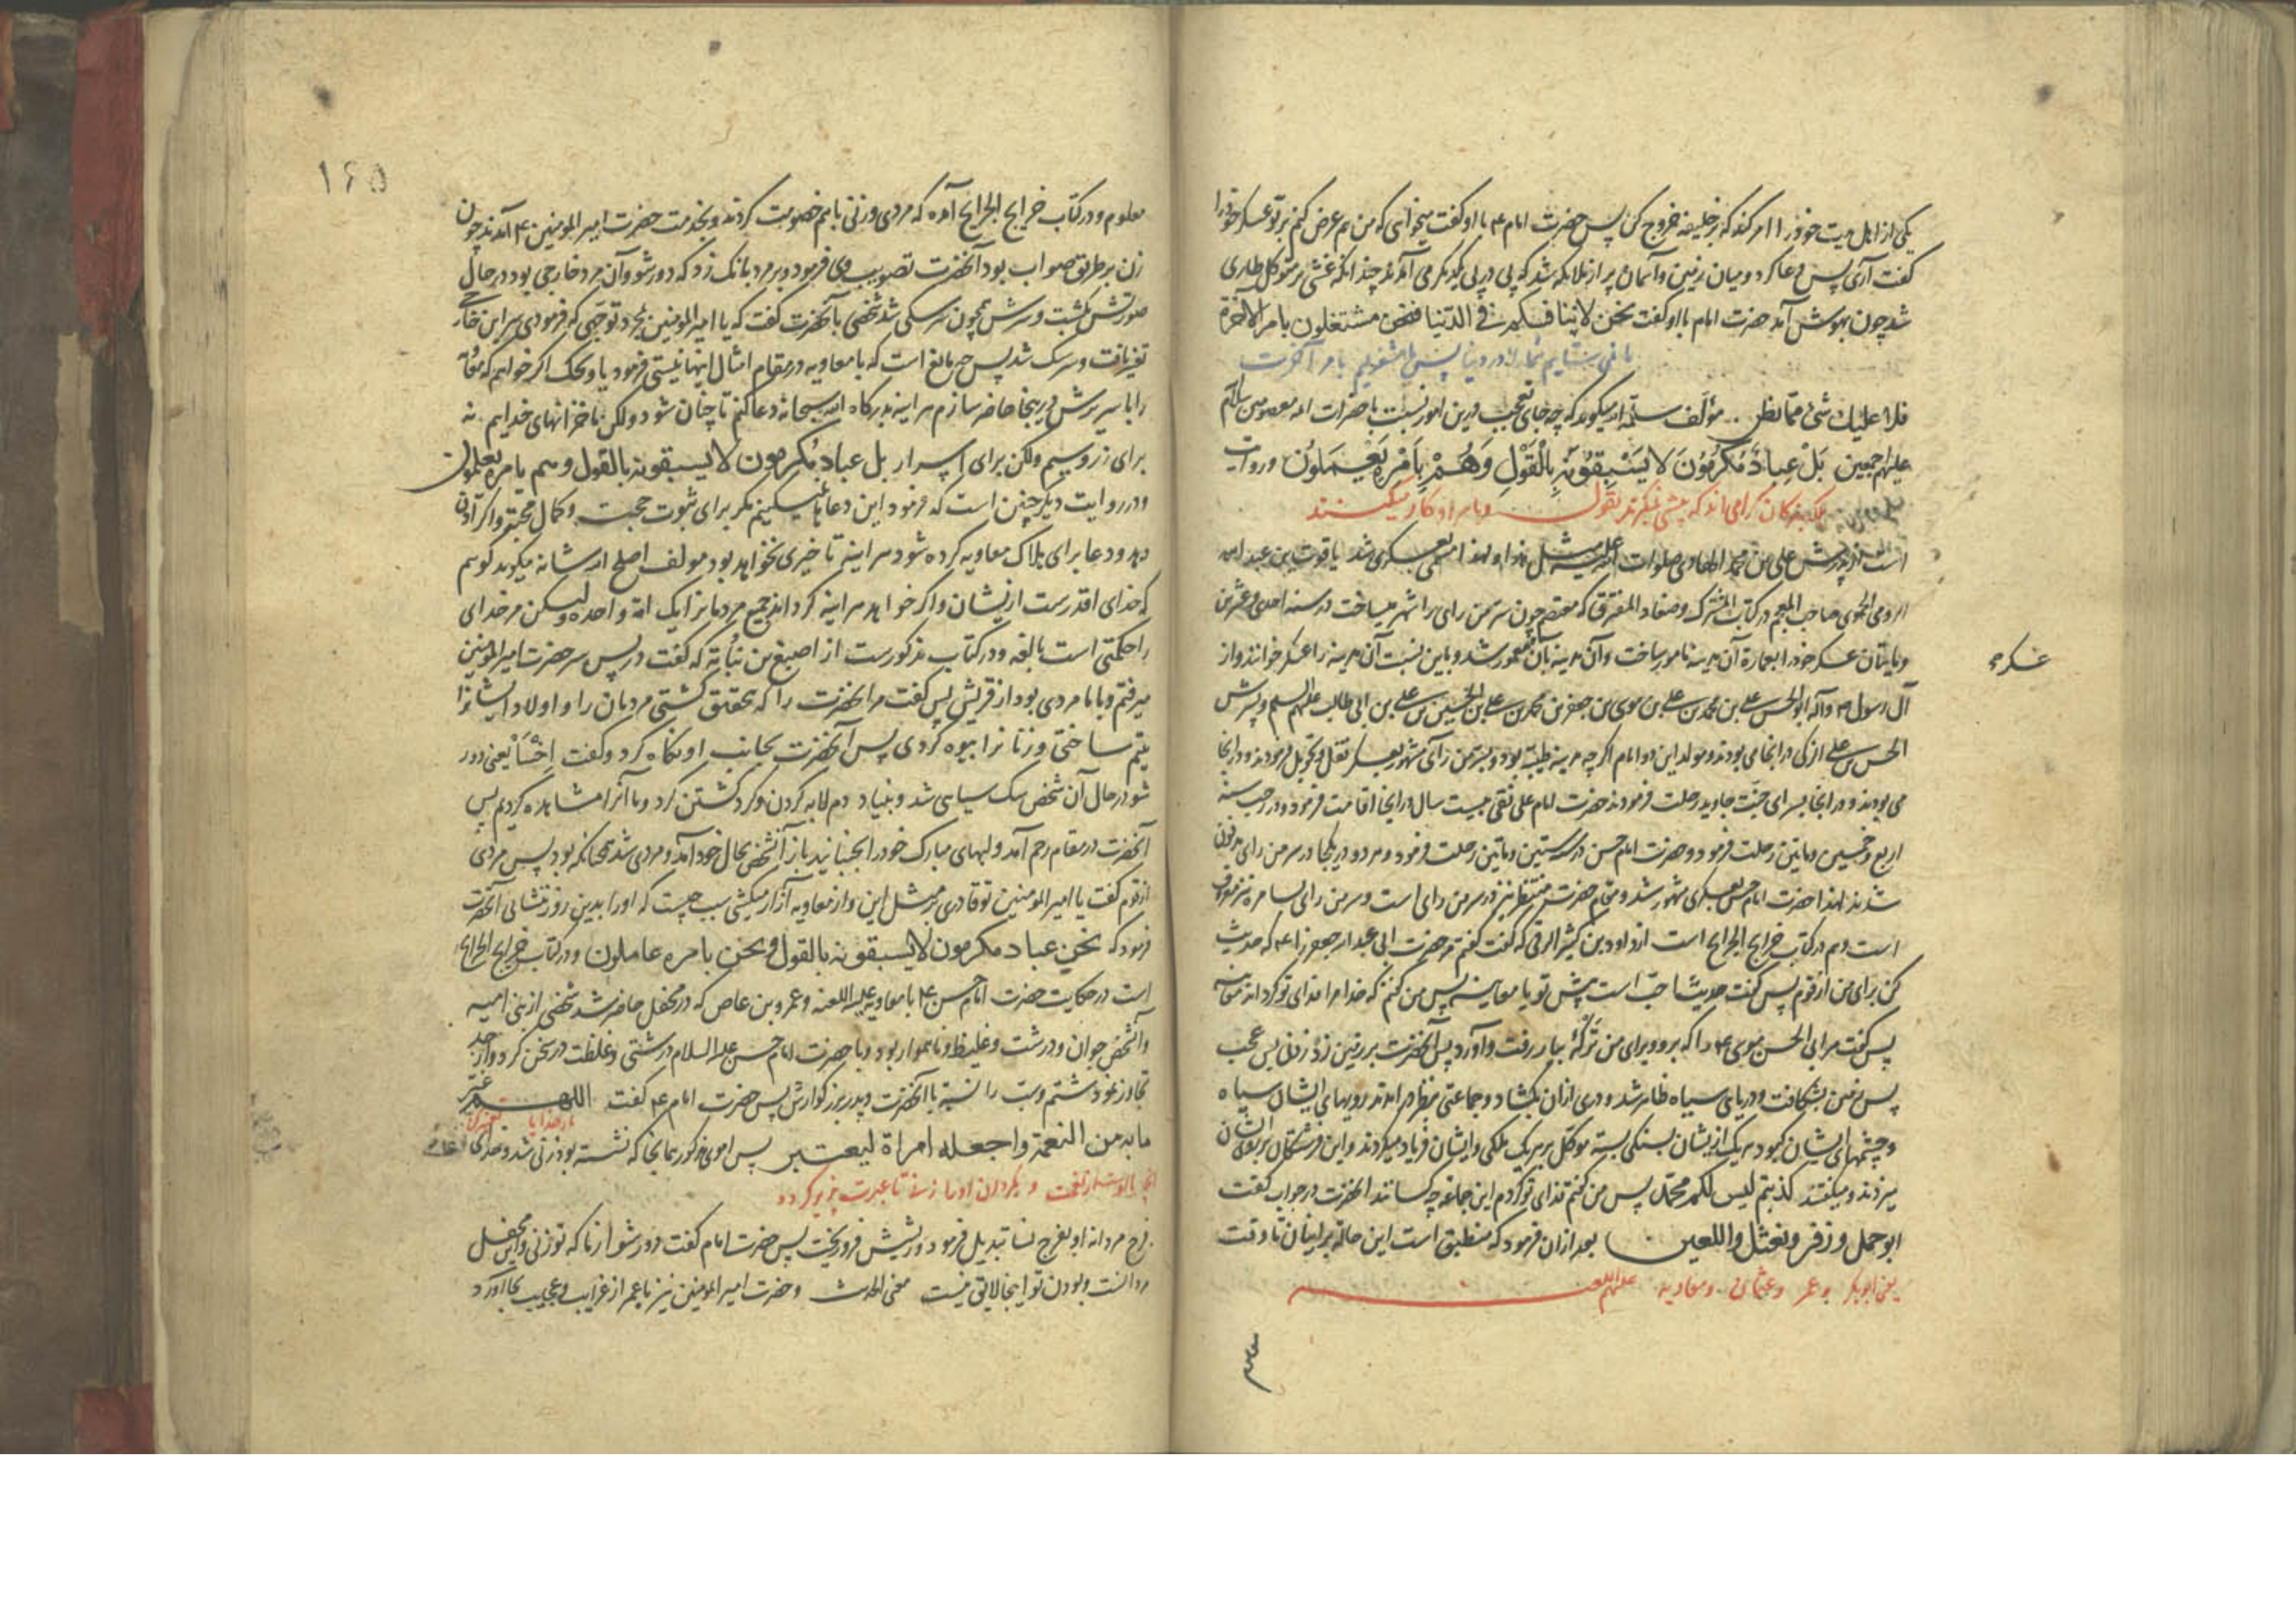 یکی از اهل بیت خود را امر کند که بر خلیفه خروج کن پس حضرت امام ع با او گفت میخواهی که من هم عرض کنم بر تو عسکر خود را
گفت آری پس دعا کرد و میان زمین و آسمان پر از ملائکه شد که پی در پی یکدیگر می آمدند چندانکه غشی بر متوکل طاری
شد چون بهوش آمد حضرت امام با او گفت نحن لا ننافسکم فی الدنیا فنحن مشتغلون بامر الآخرة
شما را در دنیا پس ما مشغولیم بامر آخرت
فلا علیک شیء مما تظن مؤلف سلمه الله میگوید که چه جای تعجب درین امور نسبت با حضرات ائمه معصومین سلام الله
علیهم اجمعین بَلْ عِبادٌ مُکْرَمُونَ لا یَسْبِقُونَهُ بِالْقَوْلِ وَهُمْ بِاَمْرِهِ یَعْمَلُونَ و روایت
بلکه بندگان گرامی اند که پیشی نگیرند بقول و بامر او کار میکنند
است از پدرش علی بن محمد الهادی صلوات الله علیه مثل هذا و لهذا مسمی بعسکری شد یاقوت بن عبد الله
الرومی الحموی صاحب المعجم در کتاب المشترک وضعا و المفترق که معتصم چون سر من رای را شهر میساخت در سنه احدی و عشرین
و مایتان عسکر خود را بعمارة آن مدینه مامور ساخت و آن مدینه بآن معمور شد و باین نسبت آن مدینه را عسکر خوانند و از
عسکر
آل رسول ص و آله ابو الحسن علی بن محمد بن علی بن موسی بن جعفر بن محمد بن علی بن الحسین بن علی بن ابی طالب علیهم السلم و پسرش
الحسن بن علی از کی در انجا می بودند و مولد این دو امام اگر چه مدینه طیبه بود و بسر من رای مشهور بعسکر نقل و تحویل فرمودند و در انجا
می بودند و در انجا بسرای جنت جاوید رحلت فرمودند حضرت امام علی نقی بیست سال در انجا اقامت فرمود و در رجب سنه
اربع و خمسین و مایتین رحلت فرمود و حضرت امام حسن در سنه ستین و مایتین رحلت فرمود و هر دو در یکجا در سر من رای مدفون
شدند لهذا حضرت امام حسن بعسکری مشهور شد و مقام حضرت منتظر نیز در سر من رای است و سر من رای بسامره نیز معروف
است و هم در کتاب خرایج الجرایح است از داود بن کثیر الرقی که گفت گفتم مر حضرت ابی عبد الله جعفر را ع که حدیث
کن برای من از قوم پس گفت حدیث احب است پیش تو یا معاینه پس من گفتم که خدا مرا فدای تو گرداند معاینه
پس گفت مر ابی الحسن موسی ع را که برو و برای من ترکه بیار رفت و آورد پس آنحضرت بر زمین زد زدنی بس عجب
پس زمین بشکافت و دریای سیاه ظاهر شد و دری از آن بکشاد و جماعتی بنظر در آمدند رویهای ایشان سیاه
و چشمهای ایشان کبود هر یک از ایشان بسنگی بسته موکل بر هر یک ملکی و ایشان فریاد میکردند و این فرشتگان بر روی ایشان
میزدند و میگفتند کذبتم لیس لکم محمد پس من گفتم فدای تو گردم این جماعه چه کسانند آنحضرت در جواب گفت
ابو جمل و زفر و نعثل و اللعین بعد از آن فرمود که منطبق است این حاله بر ایشان تا وقت
یعنی ابوبکر و عمر و عثمان و معاویه علیهم اللعنه
۱۶۵
معلوم و در کتاب خرایج الجرایح آمده که مردی و زنی با هم خصومت کردند و بخدمت حضرت امیر المومنین ع آمدند چون
زن بر طریق صواب بود آنحضرت تصویب وی فرمود و بر مرد بانک زد که دور شو و آن مرد خارجی بود در حال
صورتش بگشت و سرش همچون سر سکی شد شخصی بآنحضرت گفت که یا امیر المومنین بمجرد توجهی که فرمودی سر این خارجی
تغیر یافت و سر سک شد پس چه مانع است که با معاویه در مقام امثال اینها نیستی فرمود یا ویحک اگر خواهم که معویه
را با سریرش در ینجا حاضر سازم هر اینه بدرگاه الله سبحانه دعا کنم تا چنان شود ولکن ما خزانهای خداییم نه
برای زر و سیم ولکن برای اسرار بل عباد مُکرمون لا یسبقونه بالقول و هم بامره یعملون
و در روایت دیگر چنین است که فرمود این دعاها نمیکنیم مگر برای ثبوت حجت و کمال محبت و اگر اذن
دهد و دعا برای هلاک معاویه کرده شود هر اینه تاخیری نخواهد بود مولف اصلح الله شانه میگوید گوییم
که خدای اقدرست از ایشان و اگر خواهد هر اینه گرداند جمیع مردمانرا یک امة واحده ولیکن مر خدای
را حکمتی است بالغه و در کتاب مذکورست از اصبغ بن نباته که گفت در پس سر حضرت امیر المومنین
میرفتم و با ما مردی بود از قریش پس گفت مر آنحضرت را که بتحقیق کشتی مردمان را و اولاد ایشانرا
یتیم ساختی و زنانرا بیوه کردی پس آنحضرت بجانب او نگاه کرد و گفت اِخْسَأْ یعنی دور
شو در حال آن شخص سک سیاهی شد و بنیاد دم لابه کردن و گرد گشتن کرد و ما آنرا مشاهده کردیم پس
آنحضرت در مقام رحم آمد و لبهای مبارک خود را بجنبانید باز آنشخص بحال خود آمد و مردی شد همچنانکه بود پس مردی
از قوم گفت یا امیر المومنین تو قادری بر مثل این و از معاویه آزار میکشی سبب چیست که او را بدین روز ننشانی آنحضرت
فرمود که نحن عباد مکرمون لا یسبقونه بالقول و نحن بامره عاملون و در کتاب خرایج الجرایح
است در حکایت حضرت امام حسن ع با معاویه علیه اللعنه و عمرو بن عاص که در محفل حاضر شد شخصی از بنی امیه
و آنشخص جوان و درشت و غلیظ و ناهموار بود و با حضرت امام حسن علیه السلام درشتی و غلظت در سخن کرد و از حد
تجاوز نمود شتم و سب را نسبة با آنحضرت و پدر بزرگوارش پس حضرت امام ع گفت اللهم غیّر
بار خدایا تغییر کن
ما به من النعمة واجعله امراة لیعتبر پس اموی مذکور همانجا که نشسته بود زنی شد و خدای
آنچه با اوست از نعمت و بگردان او را زن تا عبرت پذیر گردد
فرج مردانه او بفرج نسا تبدیل فرمود و ریشش فرو ریخت پس حضرت امام گفت دور شو از ما که تو زنی و این محفل
مردانست و بودن تو اینجا لایق نیست معنی الحدیث و حضرت امیر المومنین نیز با عمر از غرایب و عجایب بجا آورد